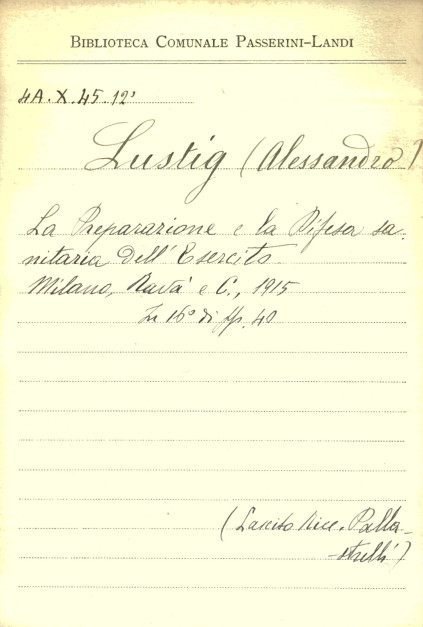 BIBLIOTECA COMUNALE PASSERINI-LANDI
4A.X.45.12'
Lustig (Alessandro)
La Preparazione e la Difesa sa-
nitaria dell'Esercito
Milano, Ravà e C., 1915
In 16° di pp. 40
(Lascito Nice. Palla-
-strelli)